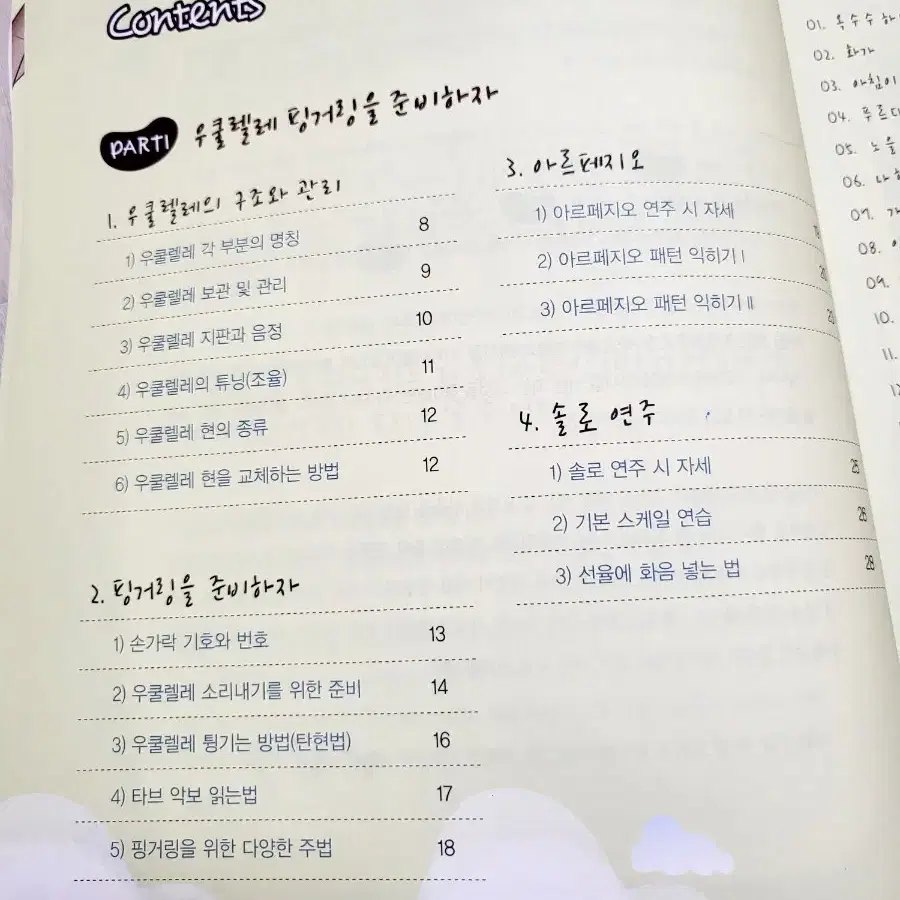 Contents
PART1 우쿨렐레 핑거링을 준비하자
1. 우쿨렐레의 구조와 관리
1) 우쿨렐레 각 부분의 명칭 8
2) 우쿨렐레 보관 및 관리 9
3) 우쿨렐레 지판과 음정 10
4) 우쿨렐레의 튜닝(조율) 11
5) 우쿨렐레 현의 종류 12
6) 우쿨렐레 현을 교체하는 방법 12
2. 핑거링을 준비하자
1) 손가락 기호와 번호 13
2) 우쿨렐레 소리내기를 위한 준비 14
3) 우쿨렐레 튕기는 방법(탄현법) 16
4) 타브 악보 읽는법 17
5) 핑거링을 위한 다양한 주법 18
3. 아르페지오
1) 아르페지오 연주 시 자세
2) 아르페지오 패턴 익히기 I
3) 아르페지오 패턴 익히기 II
4. 솔로 연주
1) 솔로 연주 시 자세 25
2) 기본 스케일 연습 26
3) 선율에 화음 넣는 법 28
01. 옥수수
02. 화가
03. 아침이
04.
05. 노을
06.
07.
08.
09.
10.
11.